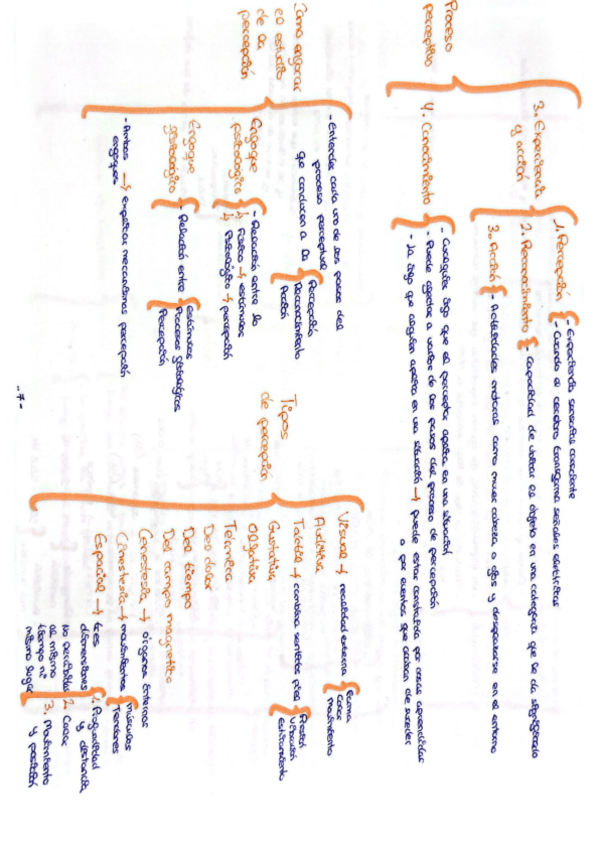 Proceso
perceptivo
3. Experiencia
y acción
1. Percepción
- Experiencia sensorial consciente
- Cuando el cerebro transforma señales eléctricas
2. Reconocimiento
- Capacidad de ubicar el objeto en una categoría que le da significado
3. Acción
- Actividades motoras como mover cabeza o ojos y desplazarse en el entorno
4. Conocimiento
- Cualquier info que el perceptor aporta en una situación
- Puede afectar a varios de los pasos del proceso de percepción
- La info que alguien aporta en una situación → puede estar constituida por cosas aprendidas
o por eventos que acaban de suceder
Como enfocar
el estudio
de la
percepción
- Entender cada uno de los pasos del
proceso perceptual
que conducen a la
Percepción
Reconocimiento
Acción
Enfoque
psicológico
- Relación entre lo
físico → estímulos
Psicológico → percepción
Enfoque
fisiológico
- Relación entre
estímulos
Procesos fisiológicos
Percepción
- Ambos → explicar mecanismos percepción
enfoques
Tipos
de percepción
Visual → realidad externa
Forma
Color
movimiento
Auditiva
Táctil → combina sentidos piel
Presión
vibración
estiramiento
Gustativa
Olfativa
Térmica
Del dolor
Del tiempo
Del campo magnético
Cenestesia → órganos internos
Cinestesia → movimientos
músculos
tendones
Espacial → tres
dimensiones
no percibidas
al mismo
tiempo ni
mismo lugar
1. Profundidad
y distancia
2. Color
3. Movimiento
y posición
- 7 -